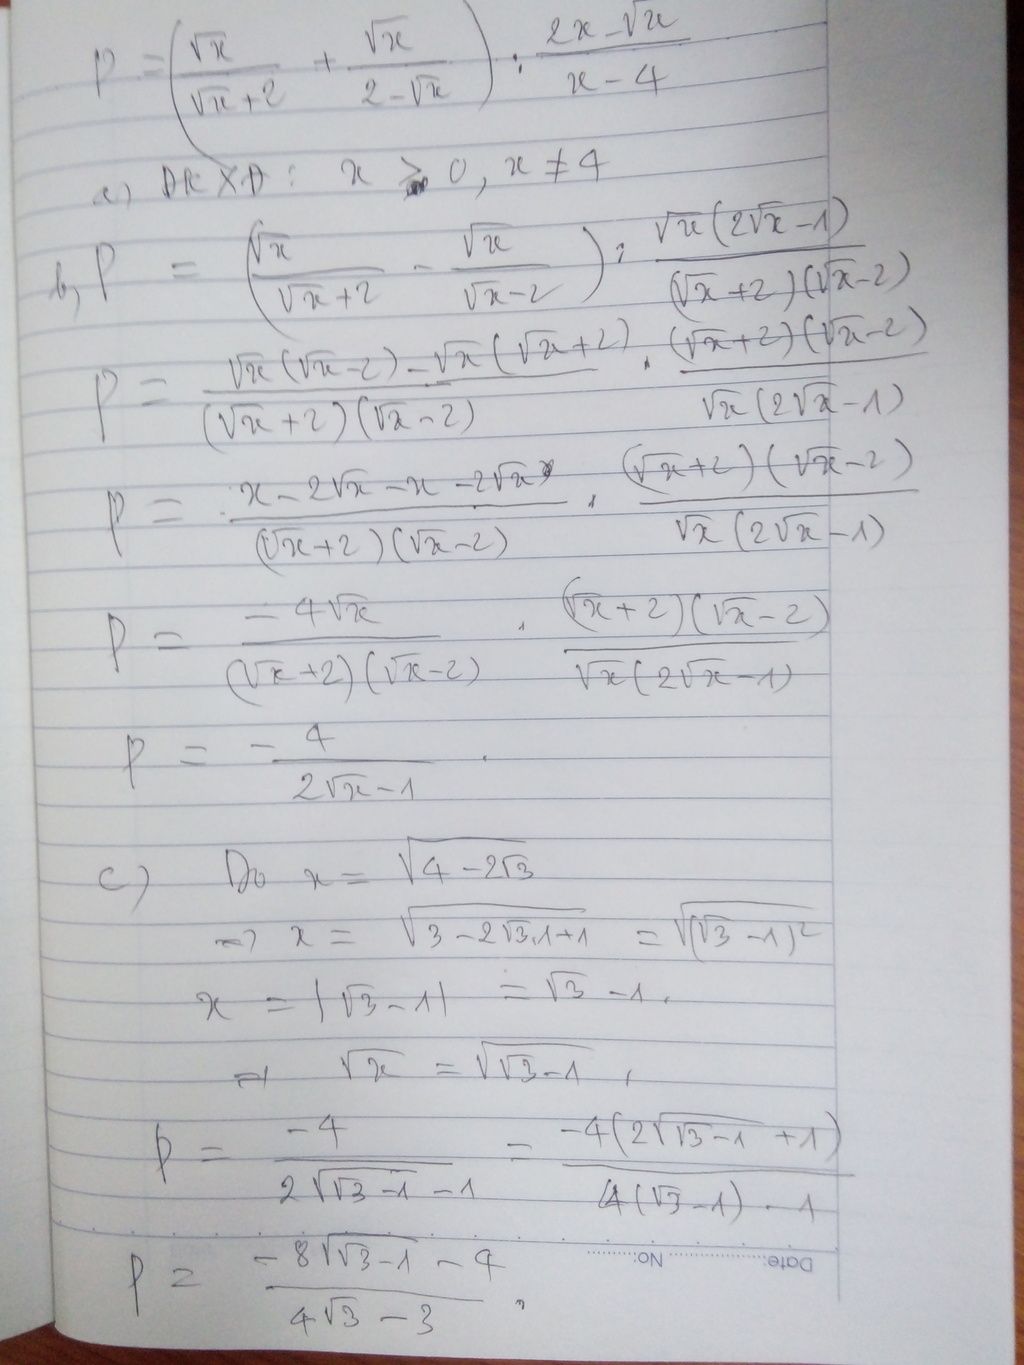 P = (√x/(√x+2) + √x/(2-√x)) : (2x-√x)/(x-4)
a, ĐKXĐ : x ≥ 0, x ≠ 4
b, P = (√x/(√x+2) - √x/(√x-2)) : √x(2√x-1)/((√x+2)(√x-2))
P = (√x(√x-2)-√x(√x+2))/((√x+2)(√x-2)) . (√x+2)(√x-2)/(√x(2√x-1))
P = (x-2√x-x-2√x)/((√x+2)(√x-2)) . (√x+2)(√x-2)/(√x(2√x-1))
P = -4√x/((√x+2)(√x-2)) . (√x+2)(√x-2)/(√x(2√x-1))
P = -4/(2√x-1) .
c) Do x = √(4-2√3)
⇒ x = √(3-2√3.1+1) = √((√3-1)²)
x = |√3-1| = √3-1.
⇒ √x = √(√3-1) ,
P = -4/(2√(√3-1)-1) = -4(2√(√3-1)+1)/(4(√3-1)-1)
P = (-8√(√3-1)-4)/(4√3-3) .
Date: No: